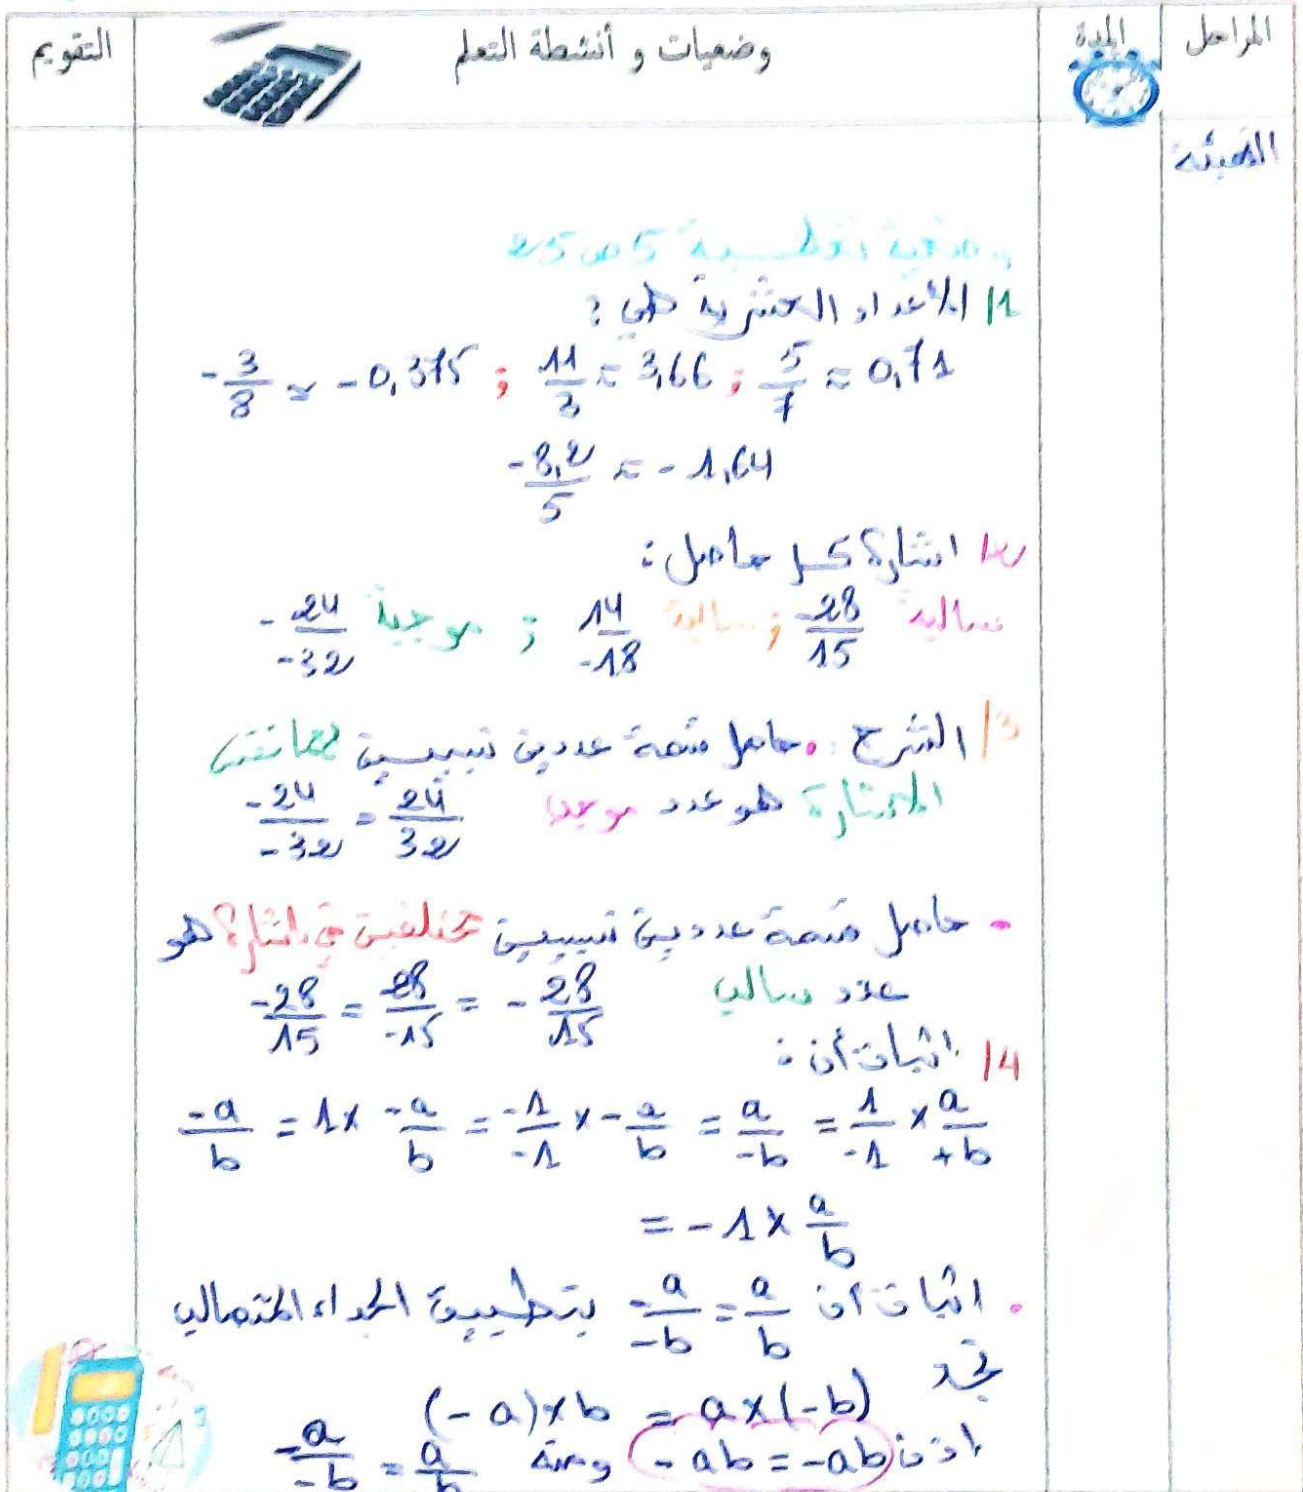 المراحل
المدة
وضعيات و أنشطة التعلم
التقويم
التهيئة
وضعية تعلمية 5 ص 25
1/ الأعداد العشرية هي :
-3/8 ≈ -0,375 ; 11/3 ≈ 3,66 ; 5/7 ≈ 0,71
-8,2/5 ≈ -1,64
2/ اشارة كل حاصل :
سالبة -28/15 ; سالبة 14/-18 ; موجبة -24/-32
3/ الشرح : . حاصل قسمة عددين نسبيين
الاشارة هو عدد موجب -24/-32 = 24/32
- حاصل قسمة عددين نسبيين مختلفين في اشارة هو
عدد سالب -28/15 = 28/-15 = - 28/15
4/ اثبات أن :
-a/b = 1 × -a/b = -1/-1 × -a/b = a/-b = 1/-1 × a/+b
= -1 × a/b
. اثبات ان -a/-b = a/b بتطبيق الجداء المتصالب
نجد
(-a)×b = a×(-b)
اذن -ab = -ab ومنه -a/-b = a/b